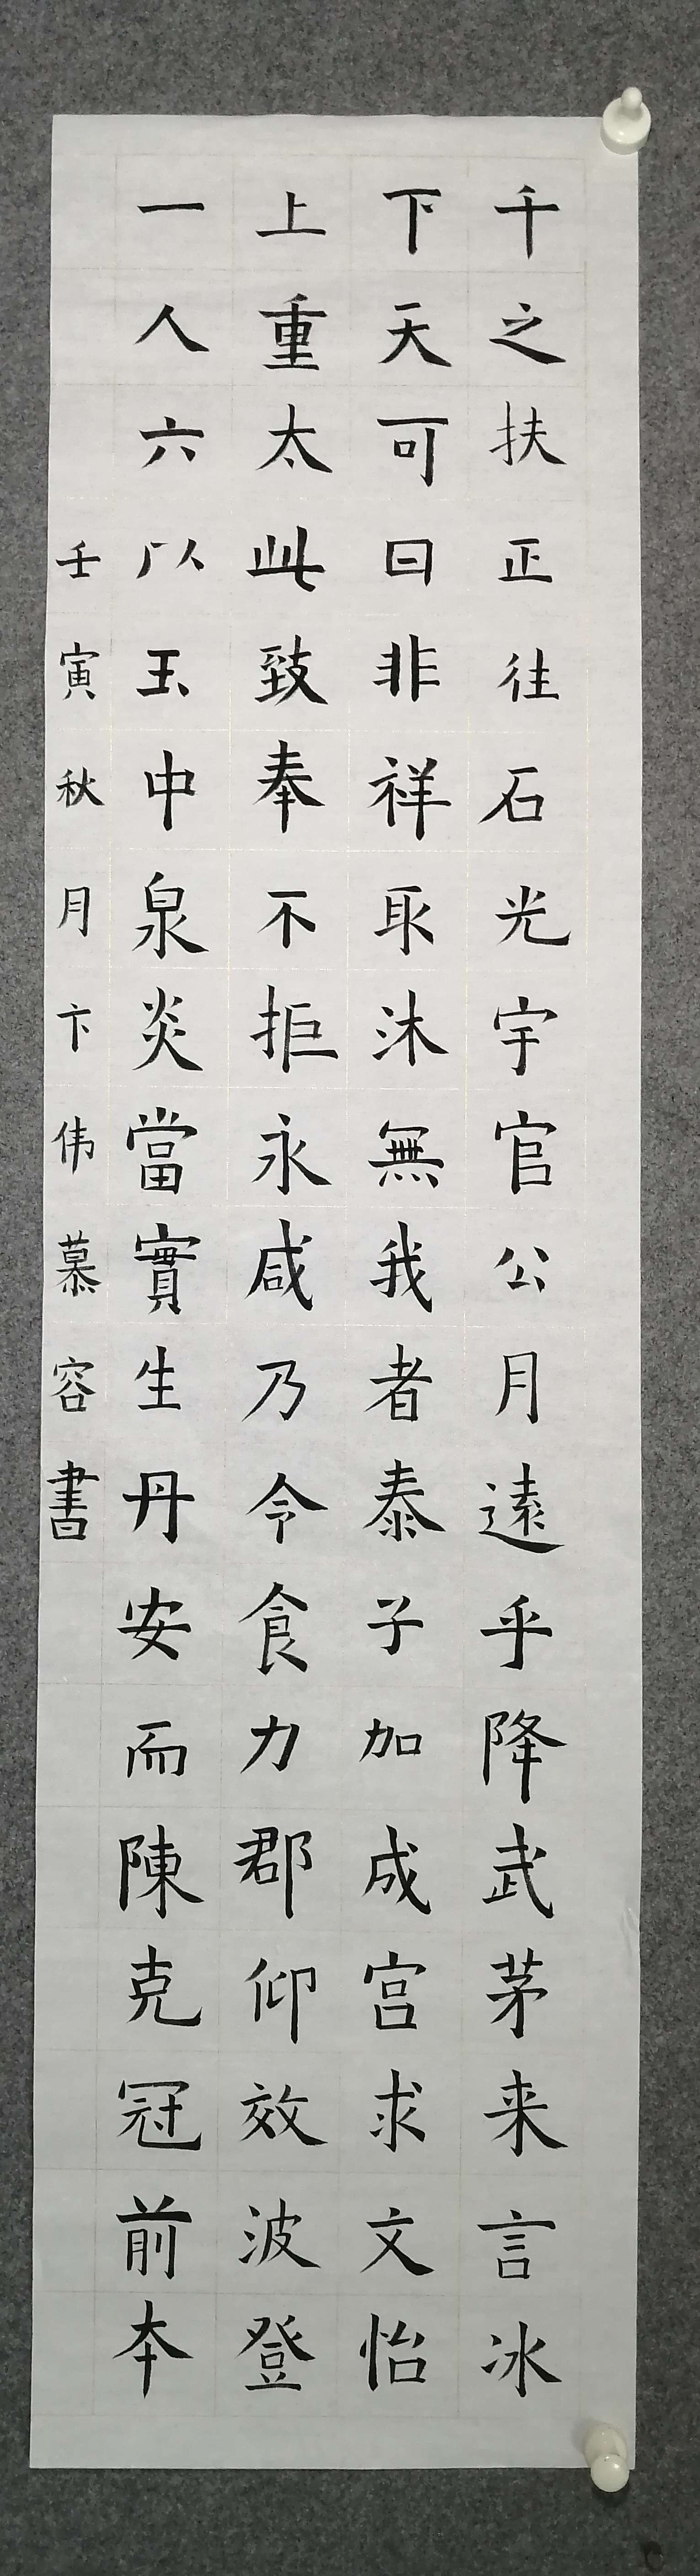 千之扶正往石光宇官公月遠乎降武茅来言冰
下天可曰非祥取沐無我者泰子加成宫求文怡
上重太此致奉不拒永咸乃令食力郡仰效波登
一人六以玉中泉炎當實生丹安而陳克冠前本
壬寅秋月卞伟慕容書